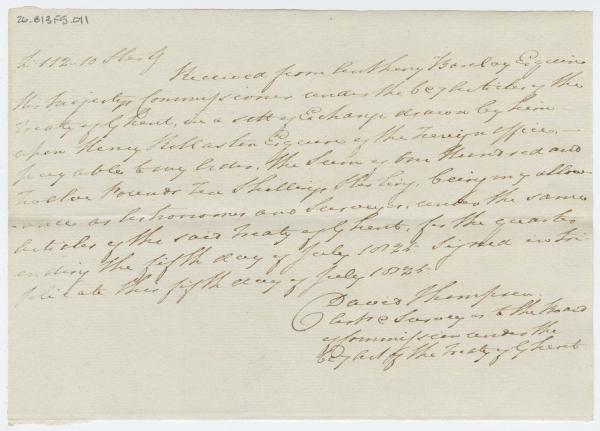 26.813FS.011
£112-10 Sterlg
Received from Anthony Barclay Esquire
His Majestys Commissioner under the 6&7 Articles of the
Treaty of Ghent, in a sett of Exchange drawn by him
upon Henry Rolleston Esquire of the Foreign Office,
payable to my order, The Sum of One Hundred and
Twelve Pounds Ten Shillings Sterling, being my allow-
-ance as Astronomer and Surveyor, under the same
Articles of the said Treaty of Ghent, for the quarter
ending the fifth day of July 1825. Signed in tri-
plicate this fifth day of July 1825.
David Thompson.
Ast & Surveyor to the Board
of Commission under the
6&7 Art of the Treaty of Ghent